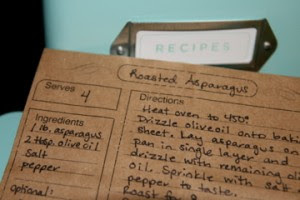 RECIPES
Roasted Asparagus
Serves 4
Ingredients
1 lb. asparagus
2 tbsp. olive oil
Salt
pepper
optional:
Directions
Heat oven to 450°
Drizzle olive oil onto baking
sheet. Lay asparagus on
pan in single layer and
drizzle with remaining ol
oil. Sprinkle with salt
pepper to taste.
Roast for